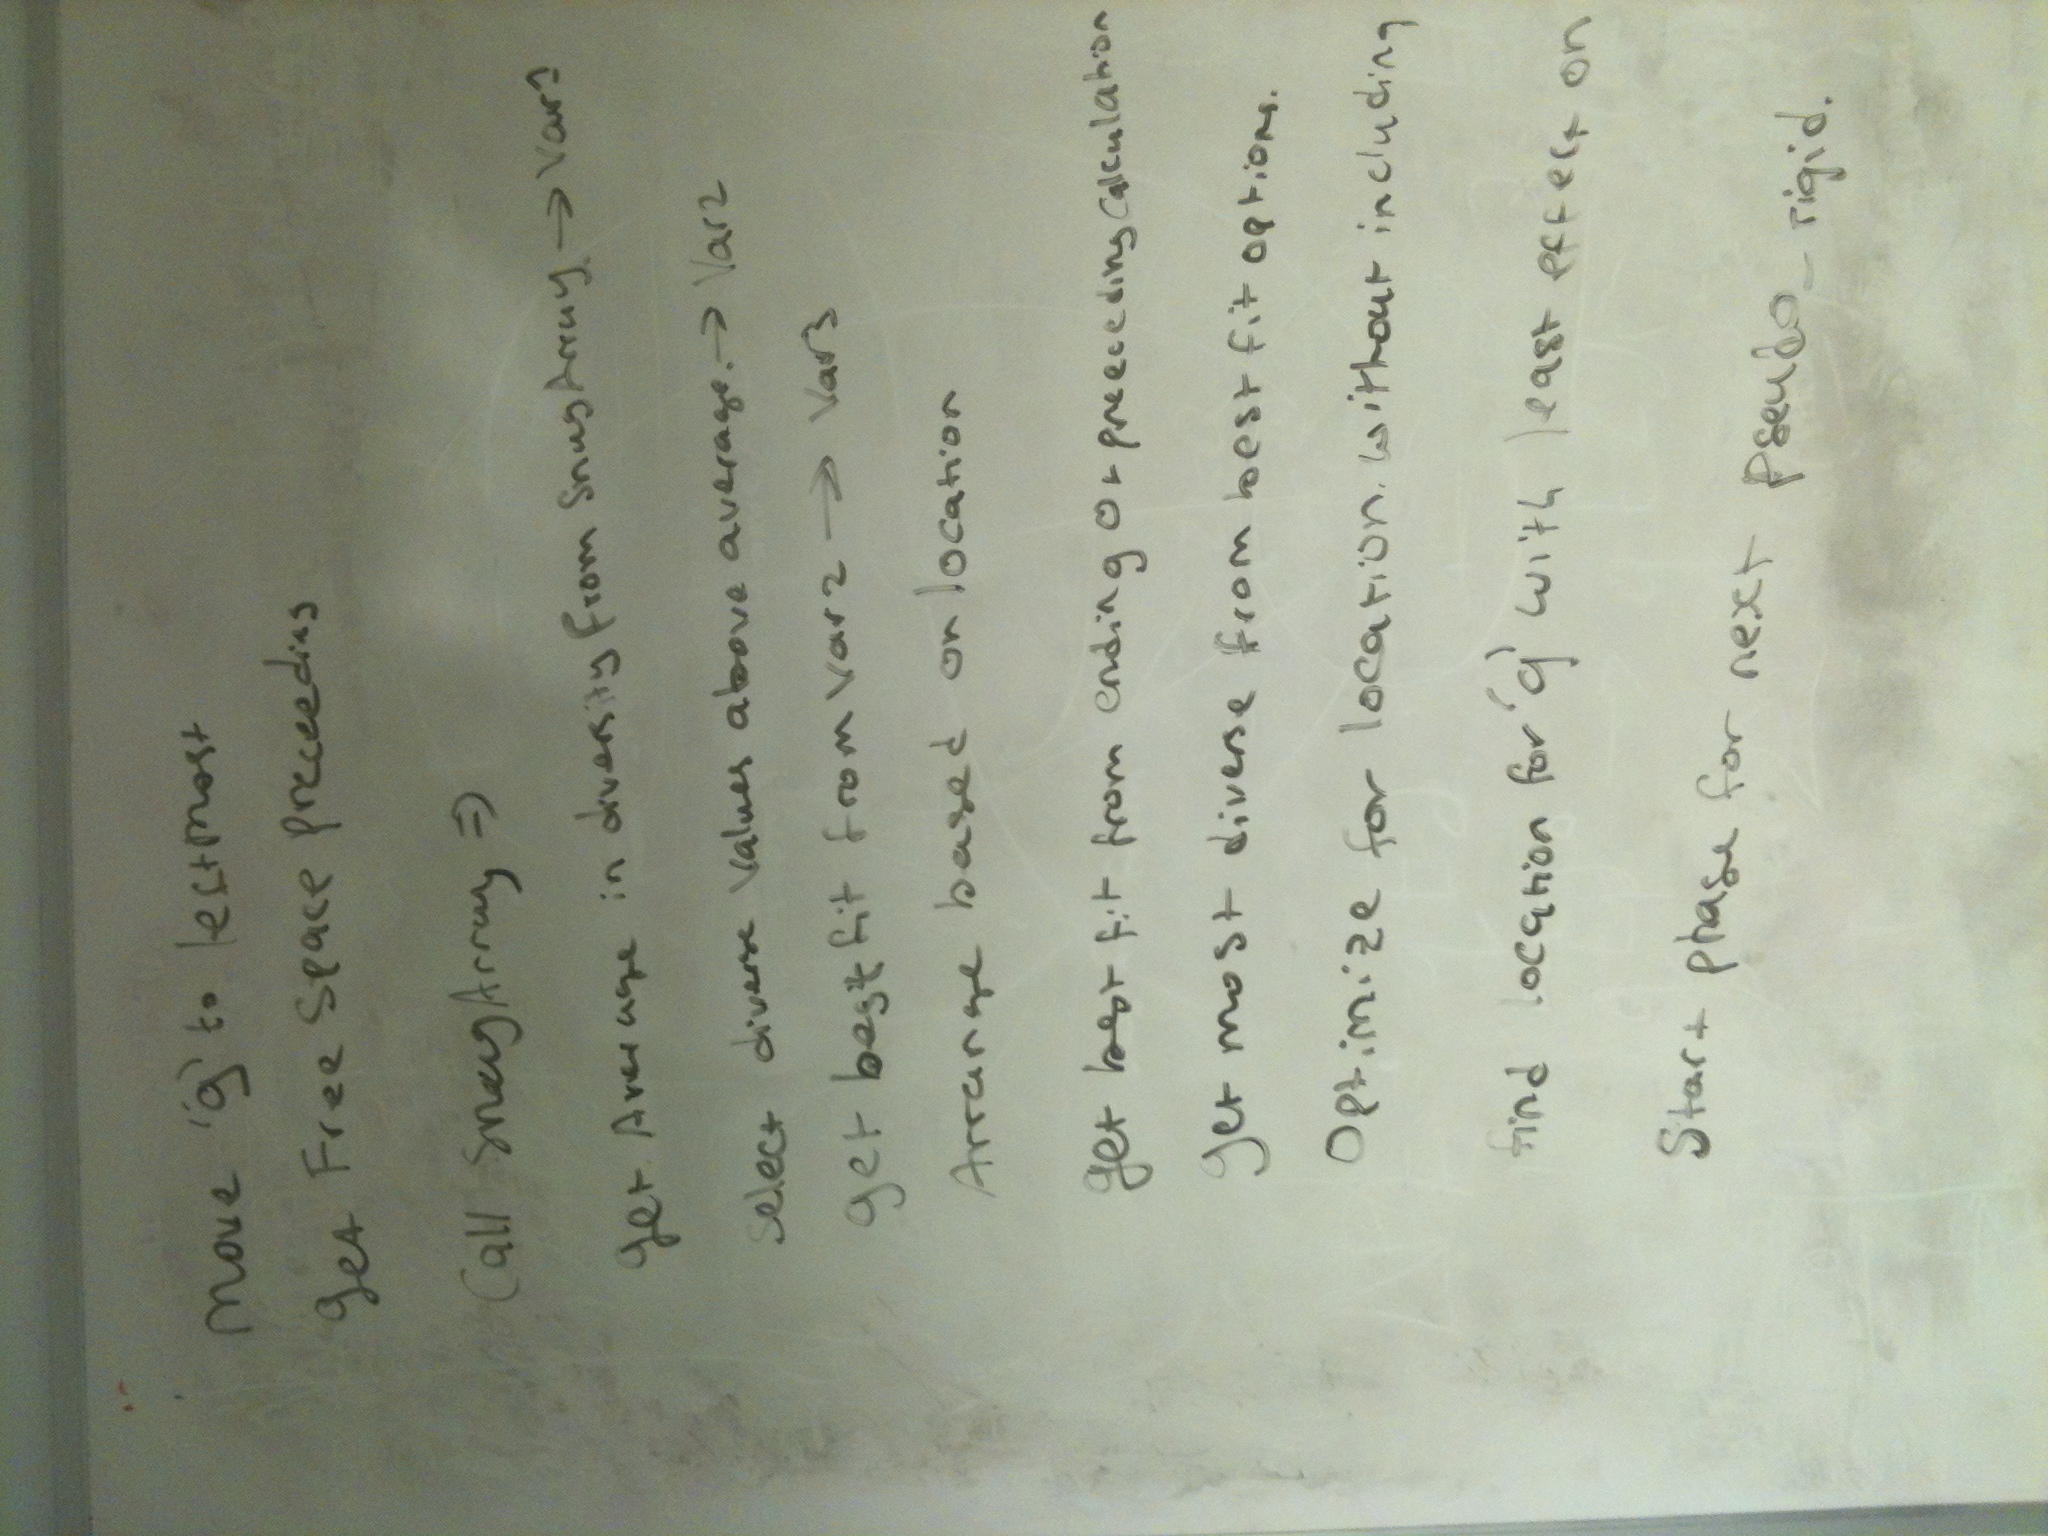 Move 'g' to leftmost
get Free Space preceeding
Call SnugArray =>
get Average in diversity from SnugArray. → Var1
Select diverse values above average. → Var2
get best fit from Var2 → Var3
Arrange based on location
get best fit from ending or preeceding calculation
get most diverse from best fit options.
Optimize for location. without including
find location for 'g' with least effect on
Start phase for next pseudo_rigid.